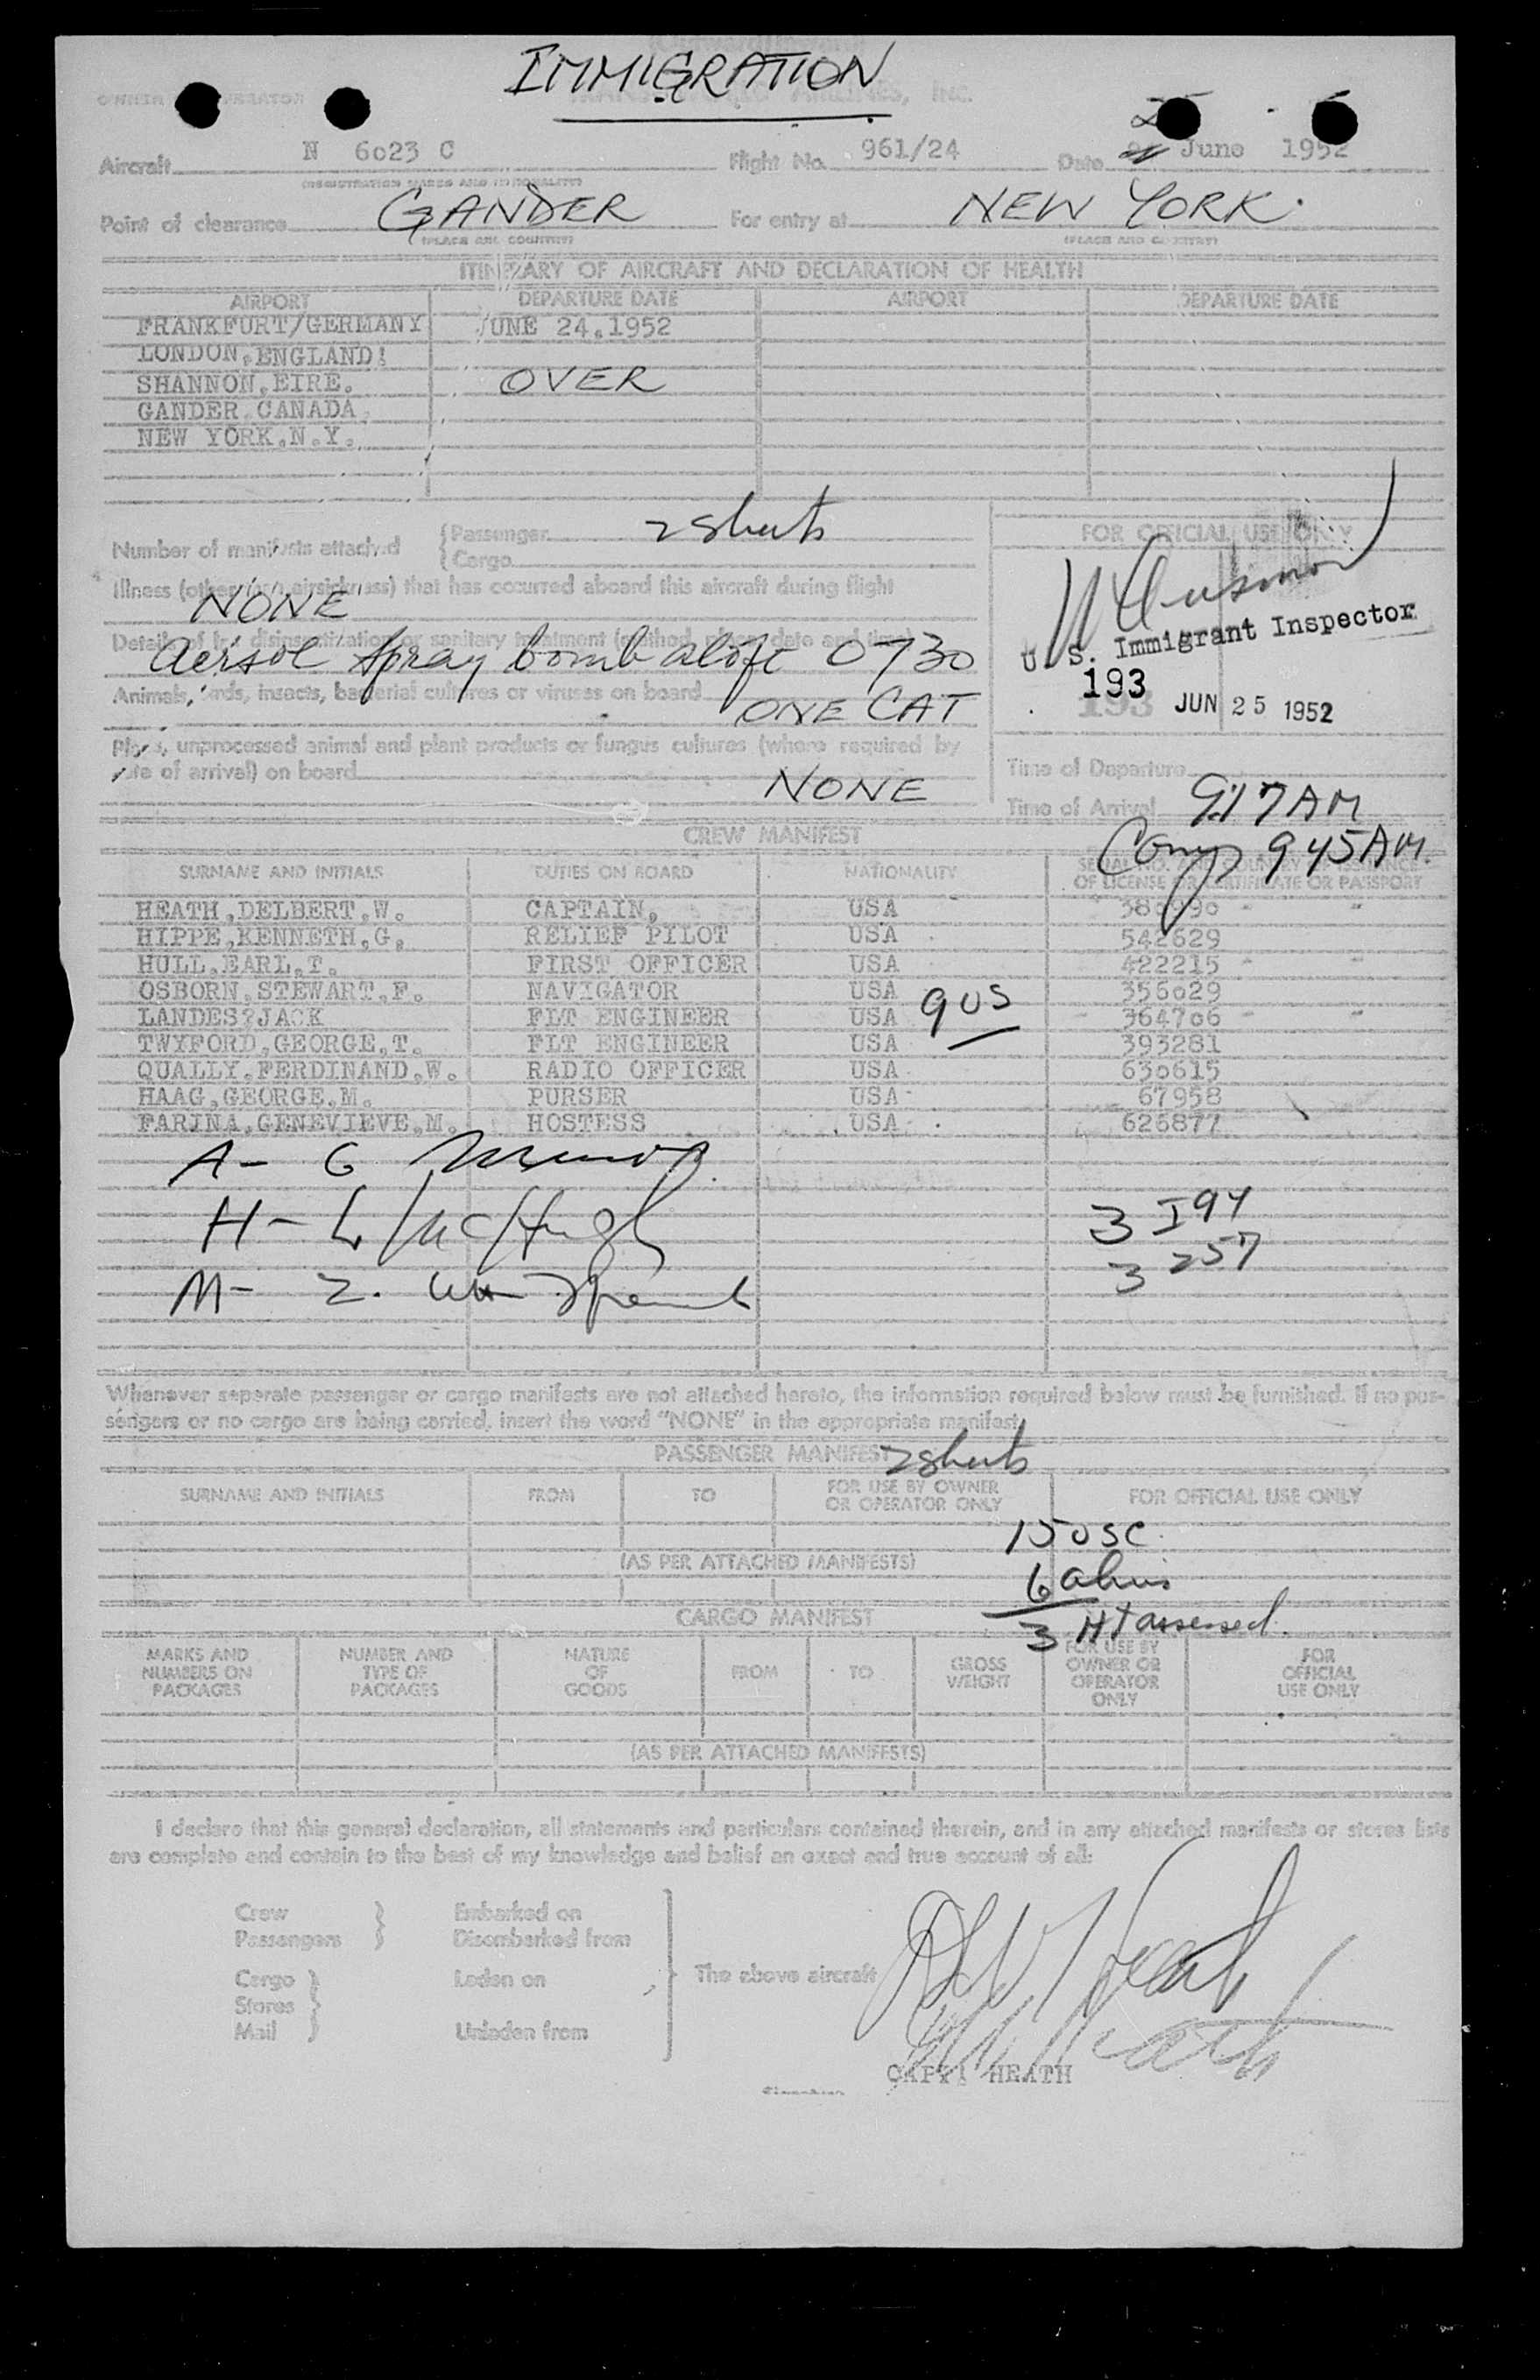 IMMIGRATION
OWNER OPERATOR TRANS WORLD AIRLINES, INC.
Aircraft N 6023 C Flight No. 961/24 Date 25 June 1952
(REGISTRATION MARKS AND NATIONALITY)
Point of clearance GANDER For entry at NEW YORK.
(PLACE AND COUNTRY) (PLACE AND COUNTRY)
ITINERARY OF AIRCRAFT AND DECLARATION OF HEALTH
AIRPORT DEPARTURE DATE AIRPORT DEPARTURE DATE
FRANKFURT/GERMANY JUNE 24.1952
LONDON,ENGLAND!
SHANNON,EIRE. OVER
GANDER CANADA
NEW YORK,N.Y.
Number of manifests attached { Passenger 2 Sheets
{ Cargo
FOR OFFICIAL USE ONLY
Illness (other than airsickness) that has occurred aboard this aircraft during flight
NONE
U.S. Immigrant Inspector
193 JUN 25 1952
Details of last disinsectization or sanitary treatment (method, place, date and time)
Aersol Spray bomb aloft 0730
Animals, birds, insects, bacterial cultures or viruses on board ONE CAT
Plants, unprocessed animal and plant products or fungus cultures (where required by
state of arrival) on board NONE
Time of Departure
Time of Arrival 9:17 AM
Comp 945 AM.
CREW MANIFEST
SURNAME AND INITIALS DUTIES ON BOARD NATIONALITY SERIAL NO. AND COUNTRY OF ISSUANCE
OF LICENSE OR CERTIFICATE OR PASSPORT
HEATH,DELBERT,W. CAPTAIN, USA 380990
HIPPE,KENNETH,G, RELIEF PILOT USA 542629
HULL,EARL,T. FIRST OFFICER USA 422215
OSBORN,STEWART,F. NAVIGATOR USA 356029
LANDES?JACK FLT ENGINEER USA 9 US 364706
TWYFORD,GEORGE,T. FLT ENGINEER USA 393281
QUALLY.FERDINAND,W. RADIO OFFICER USA 630615
HAAG,GEORGE,M. PURSER USA 67958
FARINA,GENEVIEVE,M. HOSTESS USA 626877
A- G
H- L McHugh 3 I 94
M- 3 257
Whenever separate passenger or cargo manifests are not attached hereto, the information required below must be furnished. If no pas-
sengers or no cargo are being carried, insert the word "NONE" in the appropriate manifest.
PASSENGER MANIFEST 2 Sheets
SURNAME AND INITIALS FROM TO FOR USE BY OWNER
OR OPERATOR ONLY FOR OFFICIAL USE ONLY
15 USC
(AS PER ATTACHED MANIFESTS)
6 aliens
CARGO MANIFEST
3 Ht assessed.
MARKS AND
NUMBERS ON
PACKAGES
NUMBER AND
TYPE OF
PACKAGES
NATURE
OF
GOODS
FROM
TO
GROSS
WEIGHT
FOR USE BY
OWNER OR
OPERATOR
ONLY
FOR
OFFICIAL
USE ONLY
(AS PER ATTACHED MANIFESTS)
I declare that this general declaration, all statements and particulars contained therein, and in any attached manifests or stores lists
are complete and contain to the best of my knowledge and belief an exact and true account of all:
Crew Embarked on
Passengers Disembarked from
Cargo Laden on The above aircraft
Stores
Mail Unladen from
D W Heath
CAPT. HEATH